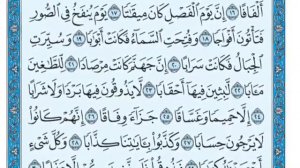 أَلْفَافًا ١٦ إِنَّ يَوْمَ الْفَصْلِ كَانَ مِيقَاتًا ١٧ يَوْمَ يُنفَخُ فِي الصُّورِ
فَتَأْتُونَ أَفْوَاجًا ١٨ وَفُتِحَتِ السَّمَاءُ فَكَانَتْ أَبْوَابًا ١٩ وَسُيِّرَتِ
الْجِبَالُ فَكَانَتْ سَرَابًا ٢٠ إِنَّ جَهَنَّمَ كَانَتْ مِرْصَادًا ٢١ لِلطَّاغِينَ
مَآبًا ٢٢ لَابِثِينَ فِيهَا أَحْقَابًا ٢٣ لَا يَذُوقُونَ فِيهَا بَرْدًا وَلَا شَرَابًا
٢٤ إِلَّا حَمِيمًا وَغَسَّاقًا ٢٥ جَزَاءً وِفَاقًا ٢٦ إِنَّهُمْ كَانُوا
لَا يَرْجُونَ حِسَابًا ٢٧ وَكَذَّبُوا بِآيَاتِنَا كِذَّابًا ٢٨ وَكُلَّ شَيْءٍ